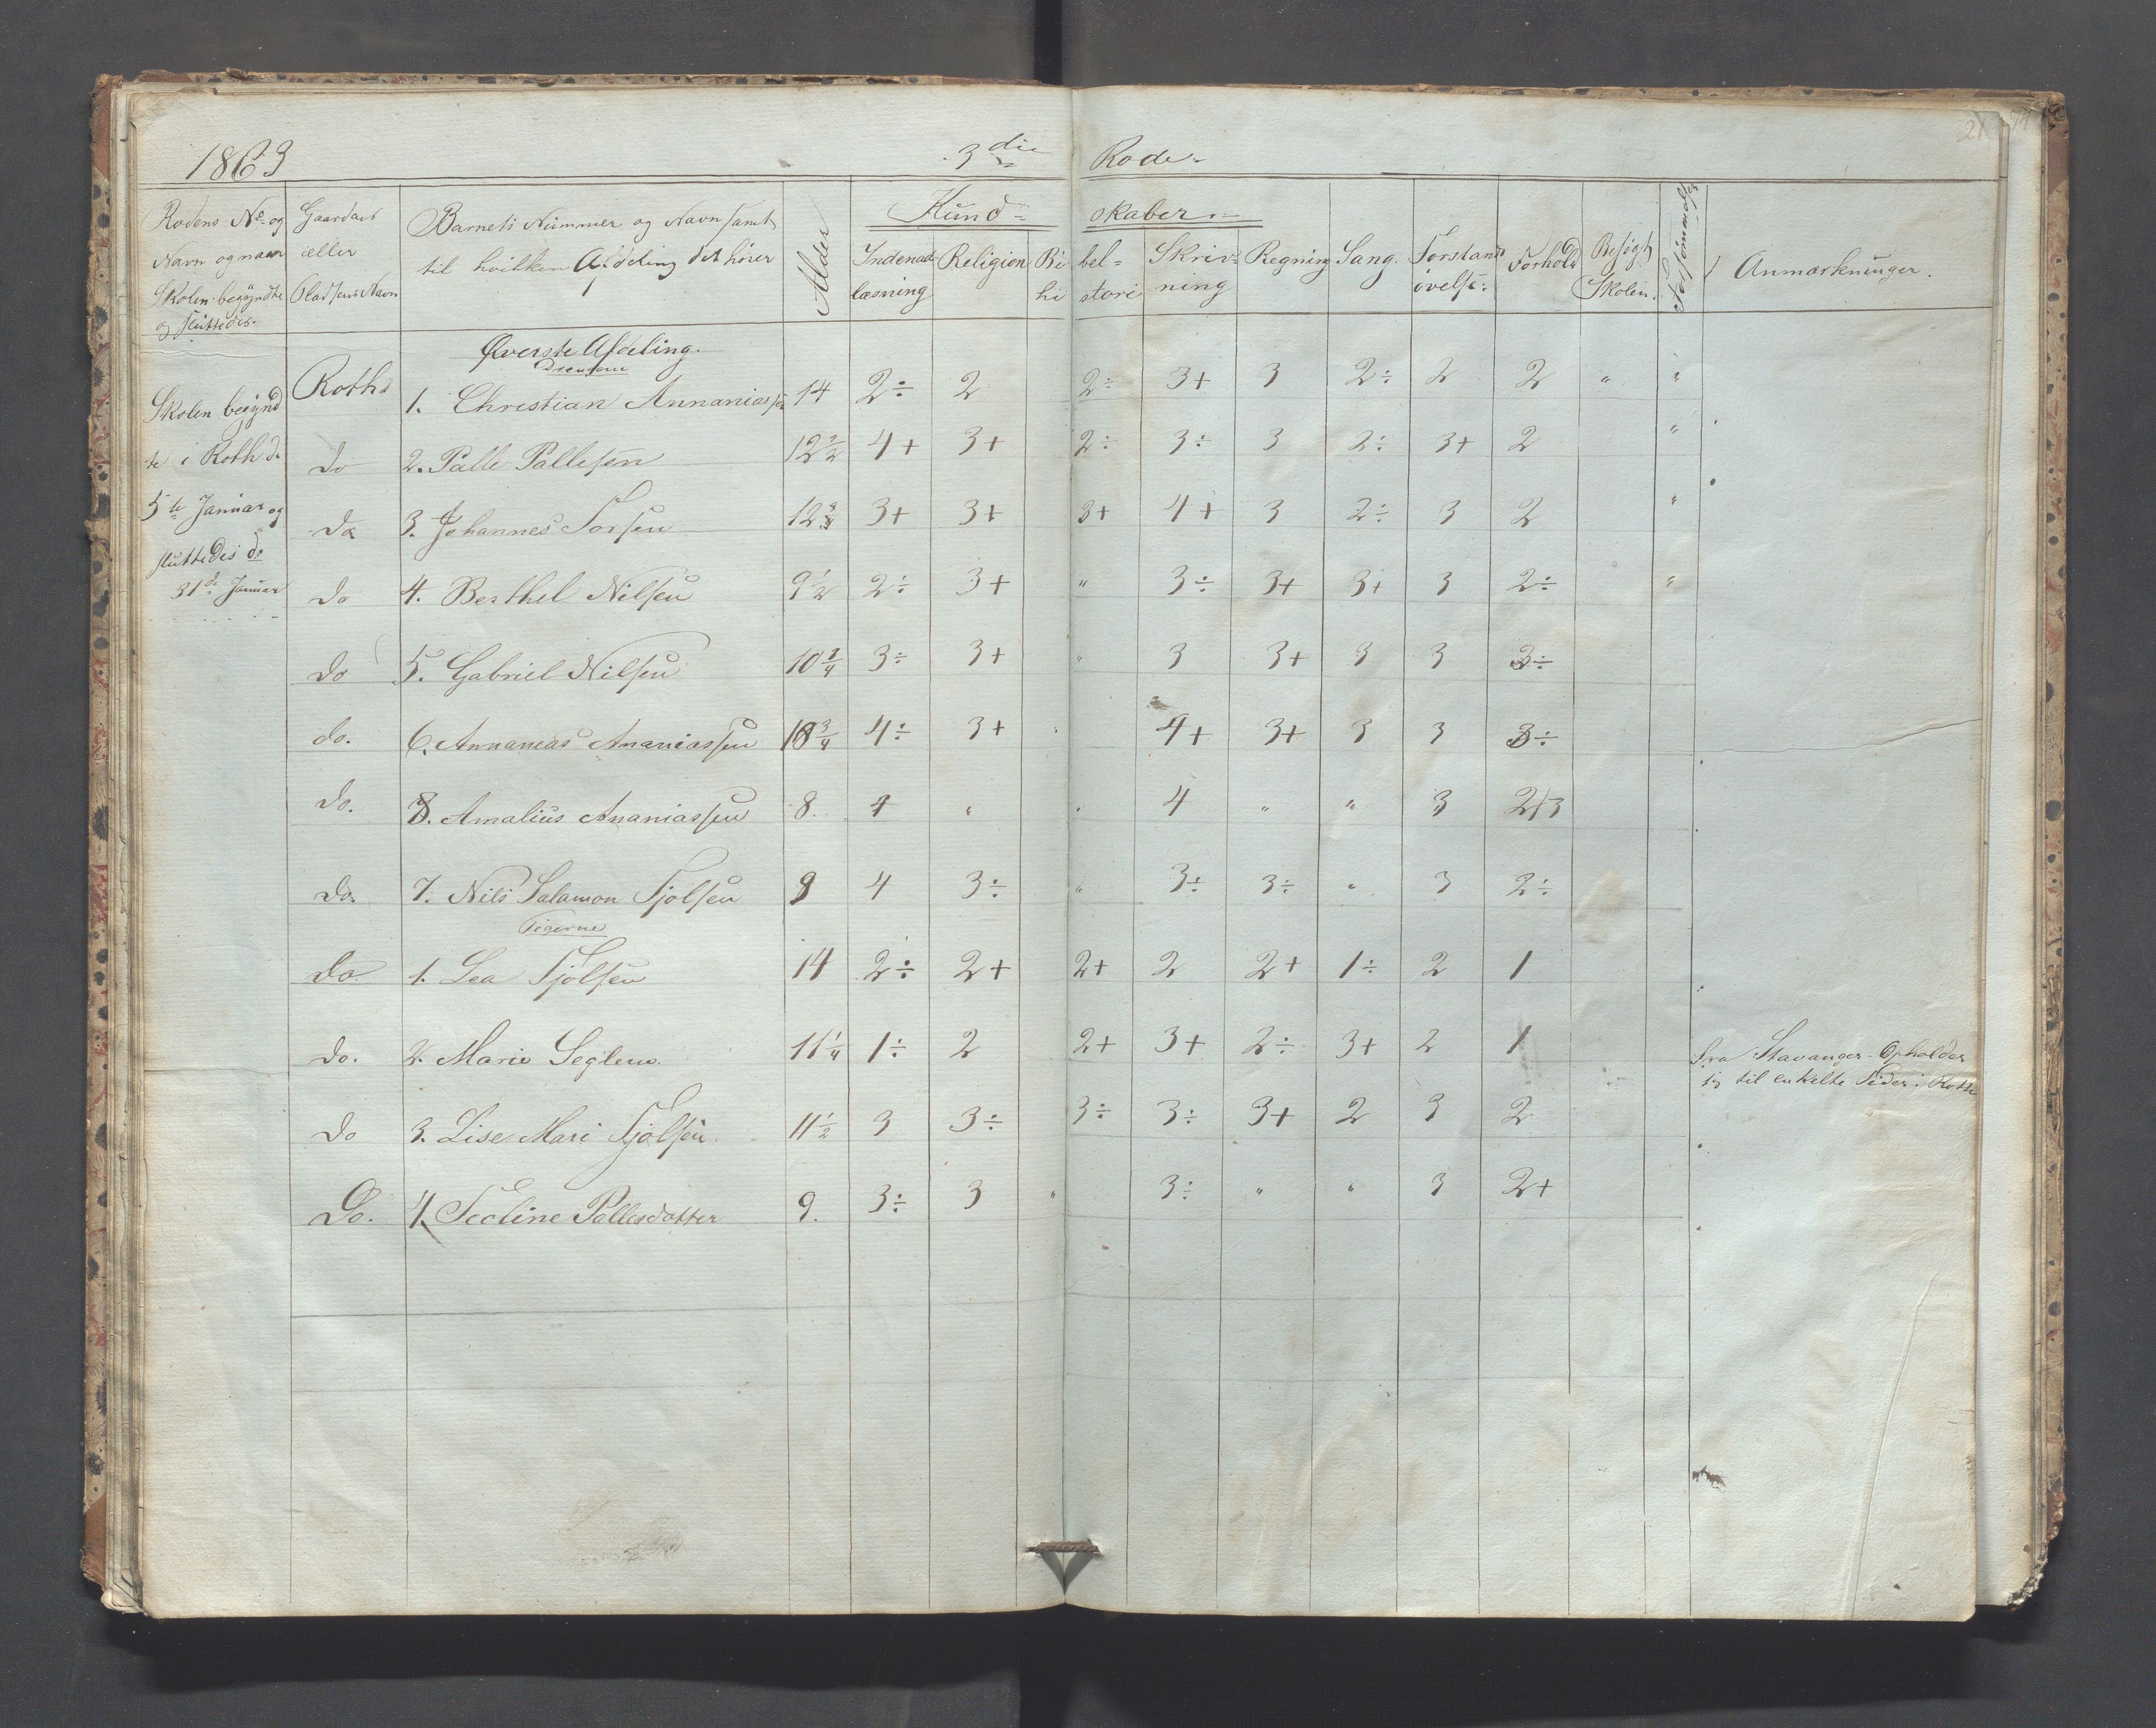 1863 3die Rode.
Rodens No og Navn og naar Skolen begyndte og sluttedes. | Gaardens eller Pladsens Navn | Barnets Nummer og Navn samt til hvilken Afdeling det hører | Alder | Kundskaber: Indenadlæsning | Religion | Bibelhistorie | Skrivning | Regning | Sang. | Forstandsøvelse. | Forhold | Besøgt Skolen. | Forsømmelser | Anmærkninger.
Øverste Afdeling.
Drengene
Skolen begyndte i Roth d. 5te Januar og sluttedes d. 31de Januar
Roth | 1. Christian Annaniassen | 14 | 2÷ | 2 | 2÷ | 3+ | 3 | 2÷ | 2 | 2 | " | "
do | 2. Palle Pallesen | 12 | 4+ | 3+ | 2÷ | 3÷ | 3 | 2÷ | 3+ | 2 | "
do | 3. Johannes Torsen | 12 3/4 | 3+ | 3+ | 3+ | 4+ | 3 | 2÷ | 3 | 2 | "
do | 4. Berthel Nilsen | 9 1/2 | 2÷ | 3+ | " | 3÷ | 3+ | 3+ | 3 | 2÷ | "
do | 5. Gabriel Nilsen | 10 3/4 | 3÷ | 3+ | " | 3 | 3+ | 3 | 3 | 3÷
do. | 6. Annanias Ananiassen | 10 3/4 | 4÷ | 3+ | 4+ | 3+ | 3 | 3 | 3÷
do. | 8. Amalius Ananiassen | 8. | 4 | " | " | 4 | " | " | 3 | 2/3
do. | 7. Nils Salamon Tjølsen | 9 | 4 | 3÷ | " | 3÷ | 3÷ | " | 3 | 2÷
Pigerne
do. | 1. Lea Tjølsen | 14 | 2÷ | 2+ | 2+ | 2 | 2+ | 1÷ | 2 | 1
do. | 2. Marie Seglem | 11 1/4 | 1÷ | 2 | 2+ | 3+ | 2÷ | 3+ | 2 | 1 | Fra Stavanger. Opholder sig til enkelte Tider i Roth
do | 3. Lise Mari Tjølsen. | 11 1/2 | 3 | 3÷ | 3÷ | 3÷ | 3+ | 2 | 3 | 2
Do. | 4. Tecline Pallesdotter | 9. | 3÷ | 3 | " | 3÷ | " | " | 3 | 2+